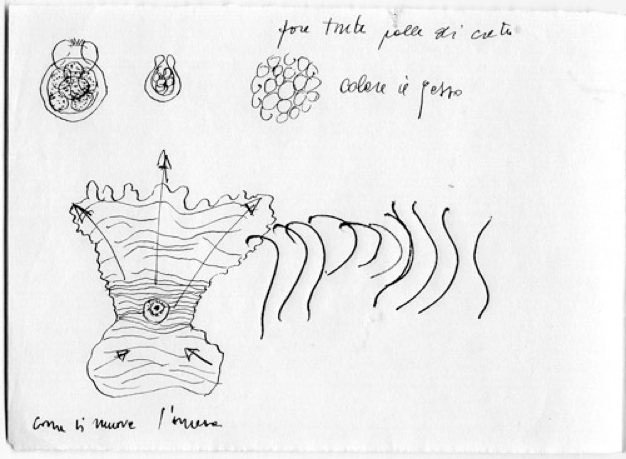 fare tante palle di creta
colare il gesso
come si muove l'ameba